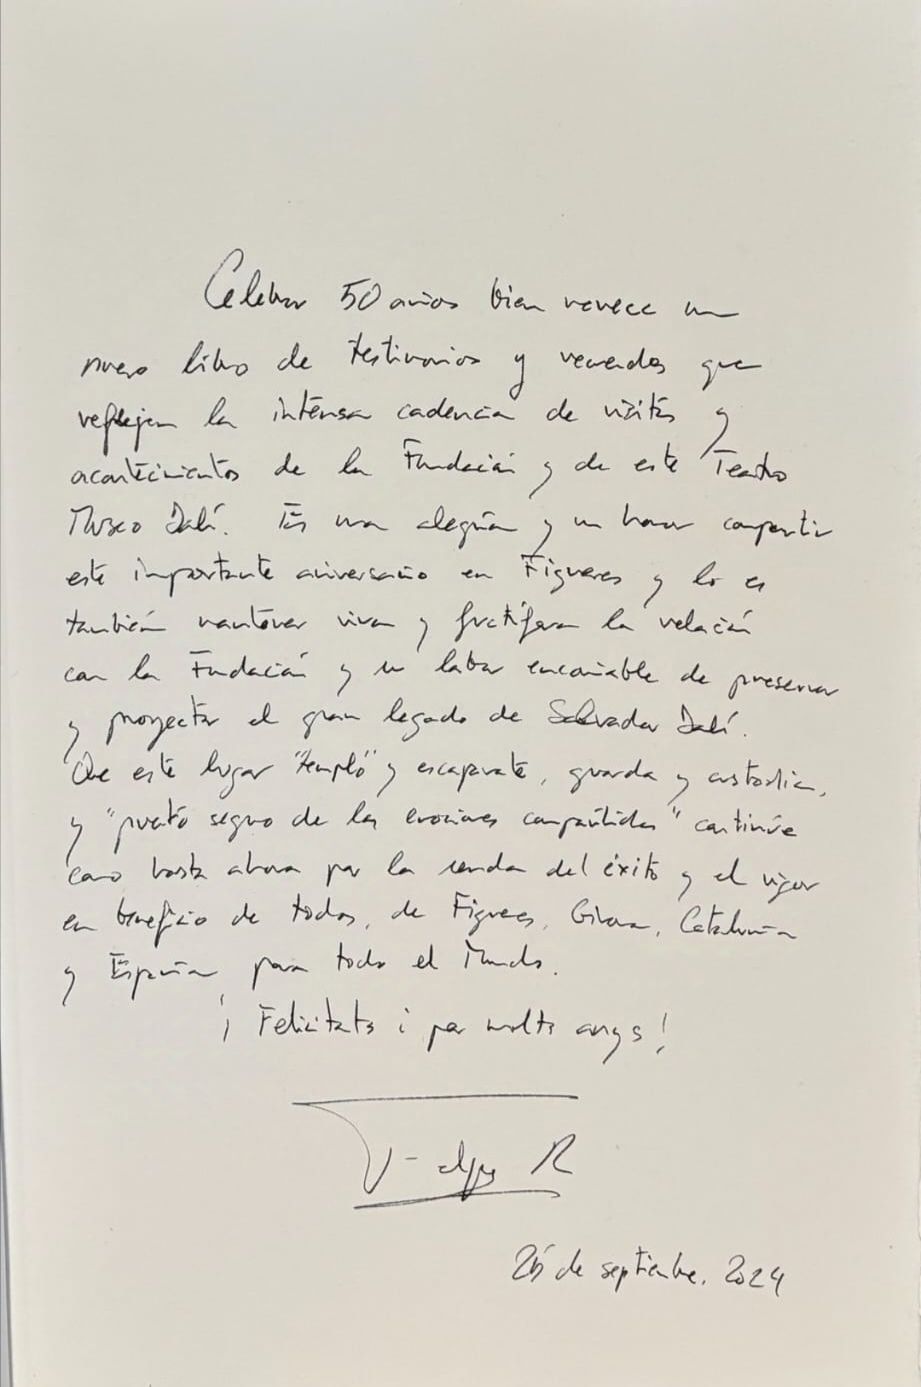 Celebrar 50 años bien merece un
nuevo libro de testimonios y recuerdos que
reflejen la intensa cadencia de visitas y
acontecimientos de la Fundación y de este Teatro
Museo Dalí. Es una alegría y un honor compartir
este importante aniversario en Figueres y lo es
también mantener viva y fructífera la relación
con la Fundación y su labor encomiable de preservar
y proyectar el gran legado de Salvador Dalí.
Que este lugar "templo" y escaparate, guarda y custodia,
y "puerto seguro de las emociones compartidas" continúe
como hasta ahora por la senda del éxito y el vigor
en beneficio de todos, de Figueres, Girona, Cataluña
y España para todo el Mundo.
¡Felicitats i per molts anys!
R
de septiembre, 2024